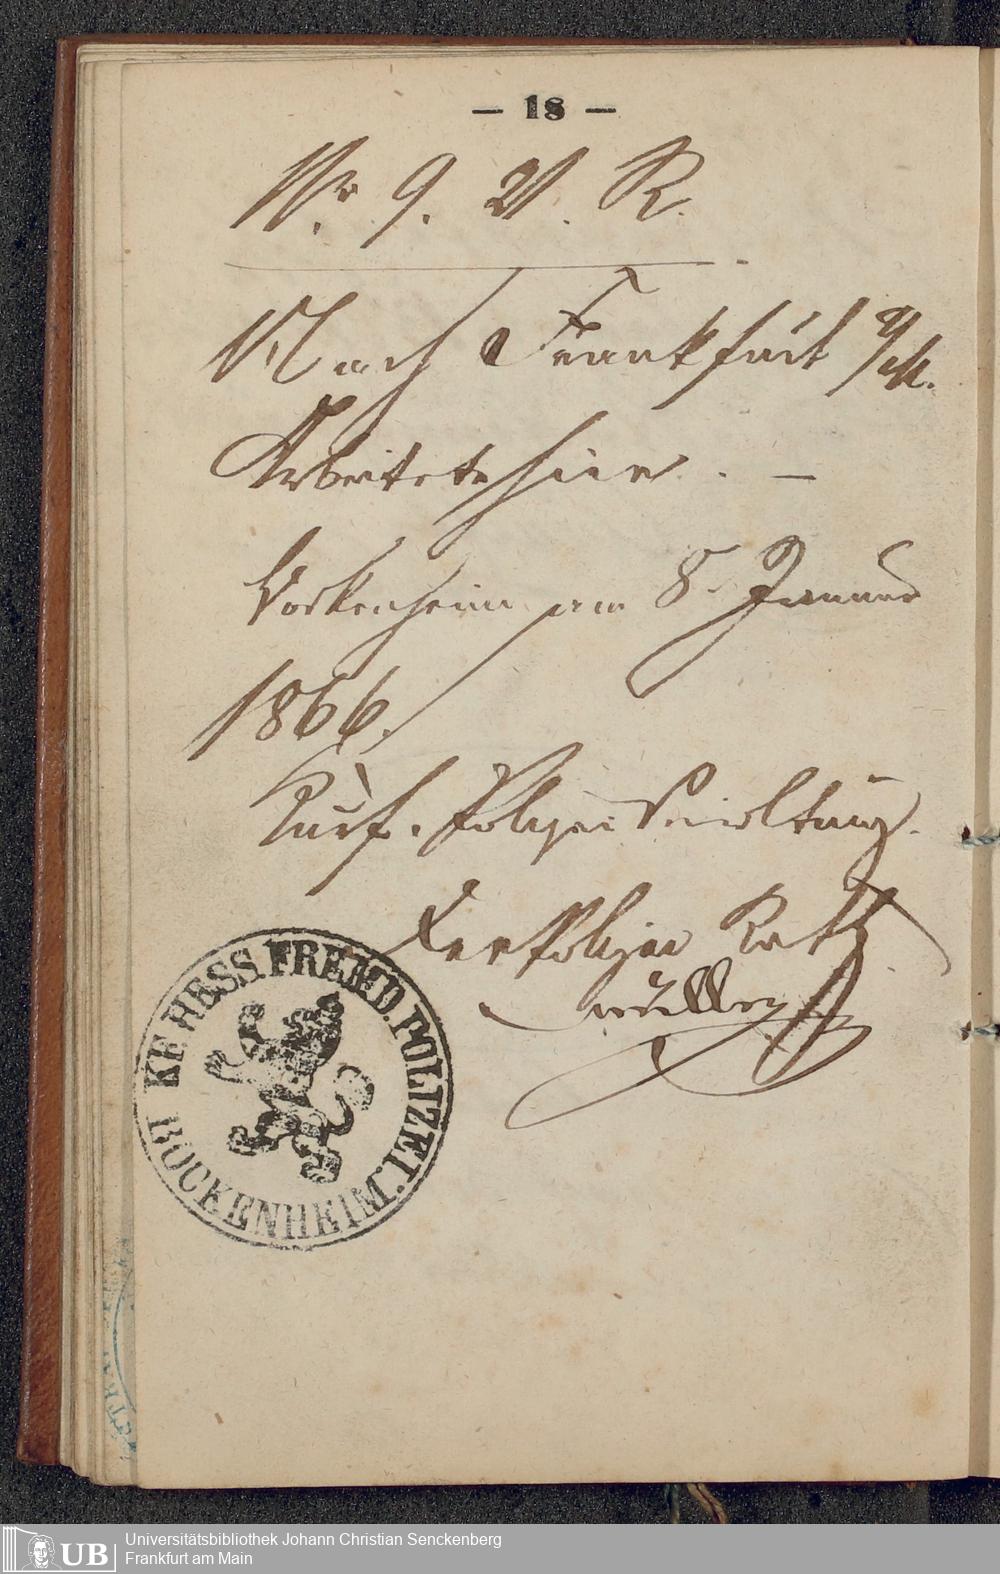 — 18 —
Nr. 9. V. R.
Nach Frankfurt a/M.
Arbeitete hier. —
Bockenheim am 8. Januar
1866.
Kurf. Polizei Verwaltung.
Der Polizei Rath
Müller
KF. HESS. FREMD. POLIZEI.
BOCKENHEIM.
UB
Universitätsbibliothek Johann Christian Senckenberg
Frankfurt am Main